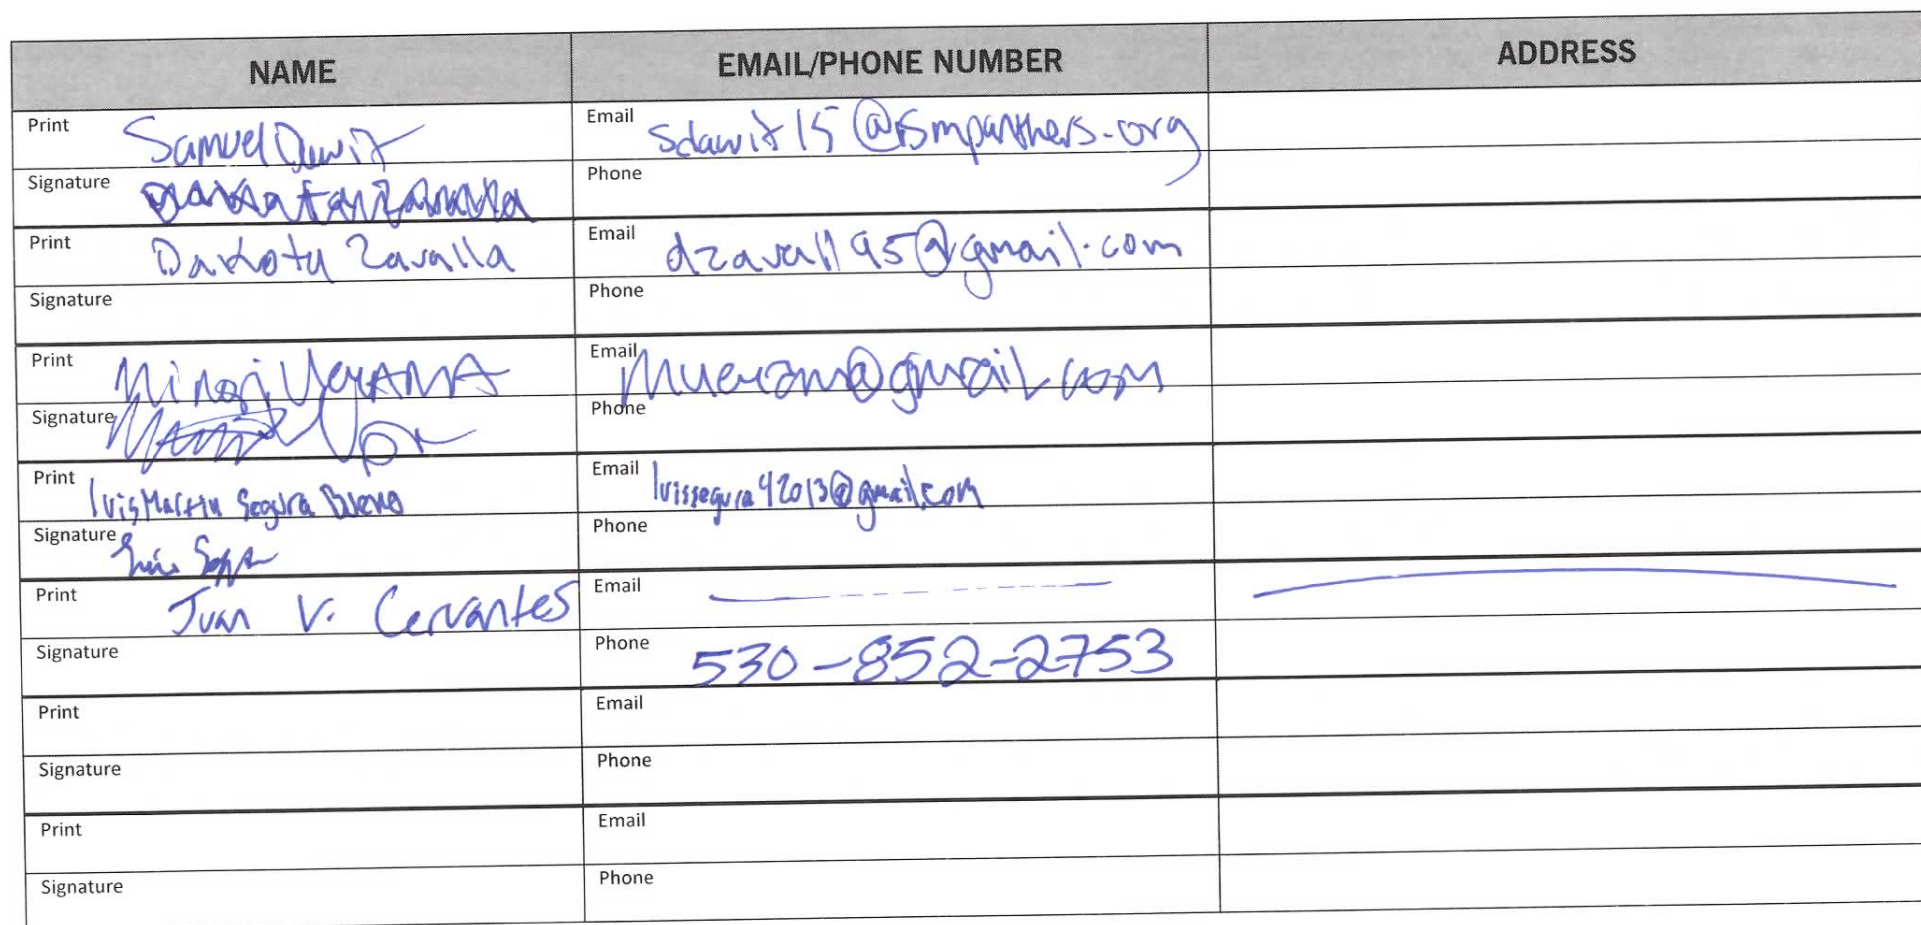 NAME EMAIL/PHONE NUMBER ADDRESS
Print Samuel Dawit Email sdawit15@smpanthers.org
Signature Phone
Print Dakota Zavalla Email dzavall95@gmail.com
Signature Phone
Print Minori Ueyama Email @gmail.com
Signature Phone
Print Luis Martin Segura Bueno Email luissegura42013@gmail.com
Signature Phone
Print Juan V. Cervantes Email
Signature Phone 530-852-2753
Print Email
Signature Phone
Print Email
Signature Phone